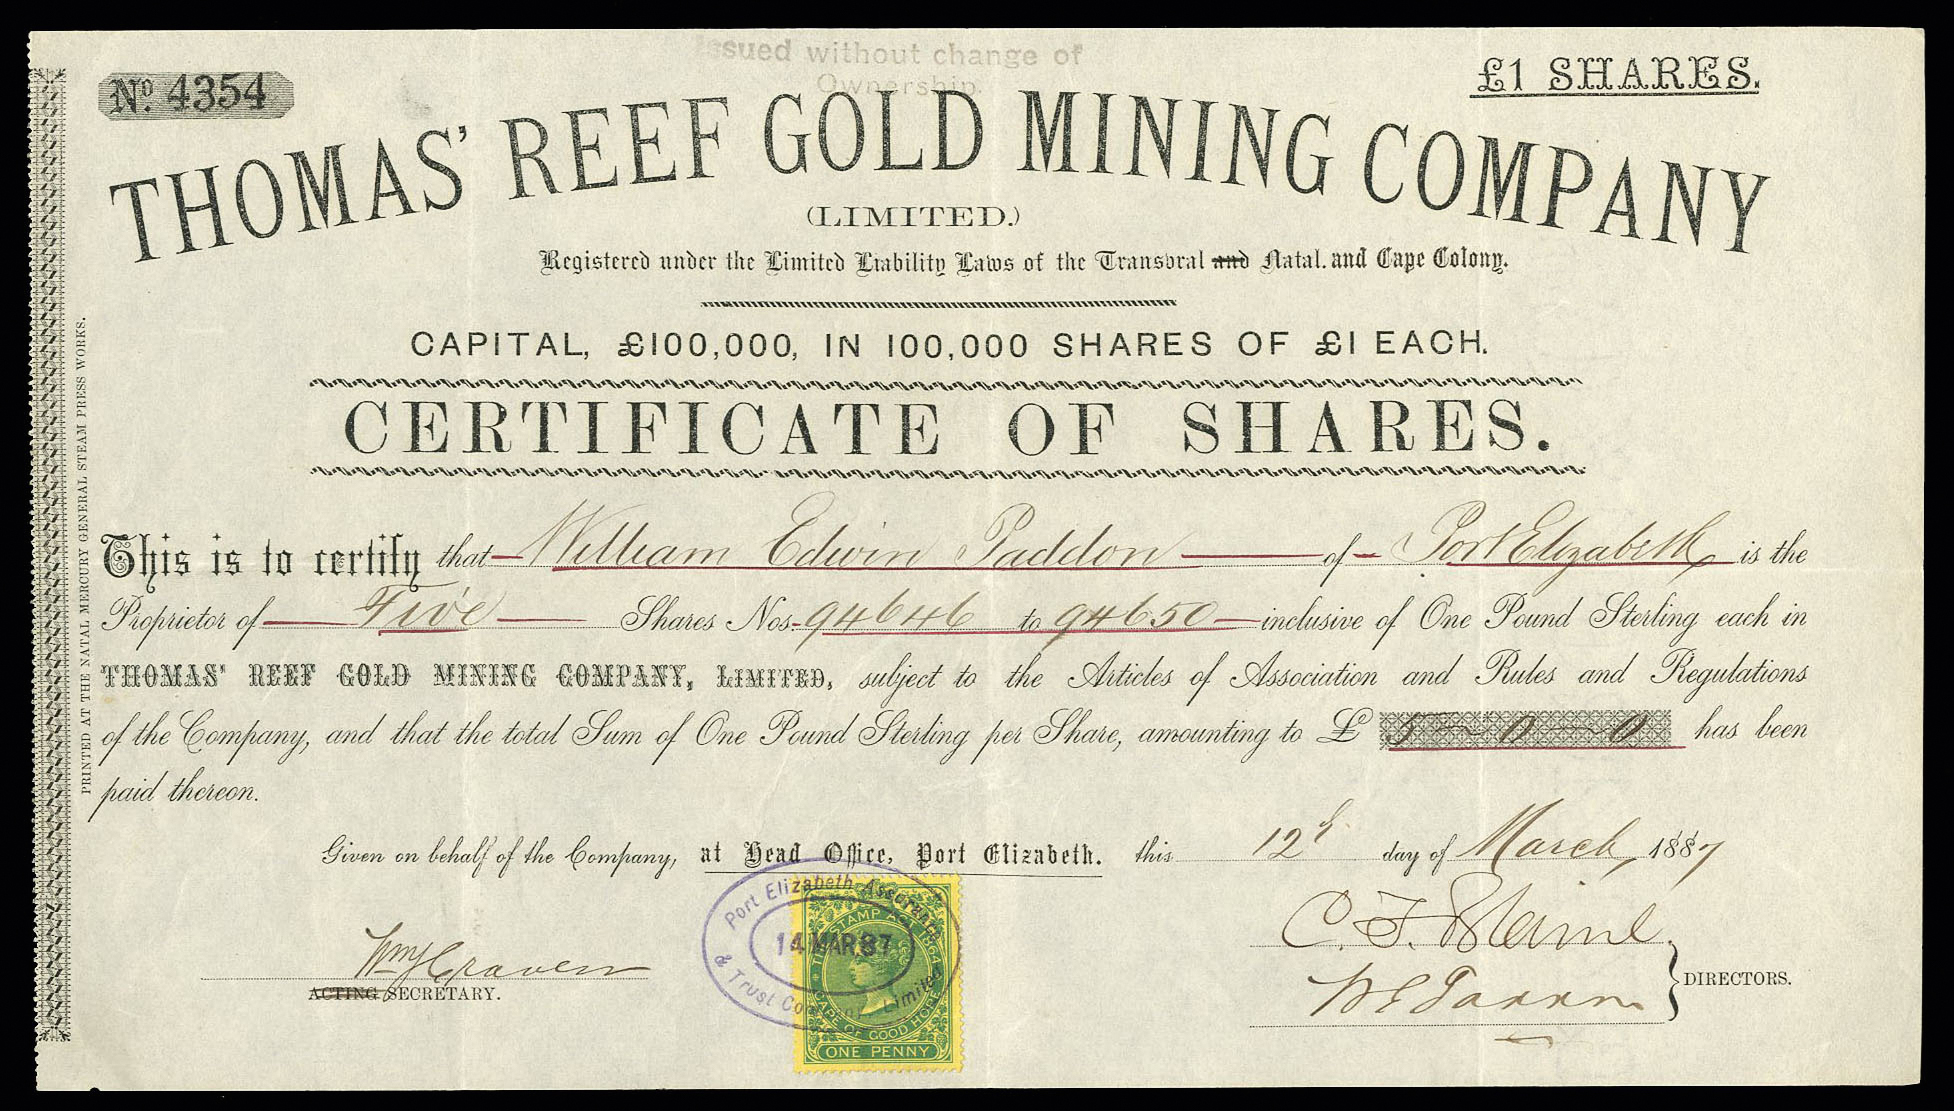 Issued without change of
Ownership.
No. 4354
£1 SHARES.
THOMAS' REEF GOLD MINING COMPANY
(LIMITED.)
Registered under the Limited Liability Laws of the Transvral and Natal. and Cape Colony.
CAPITAL, £100,000, IN 100,000 SHARES OF £1 EACH.
CERTIFICATE OF SHARES.
This is to certify that William Edwin Paddon of Port Elizabeth is the
Proprietor of Five Shares Nos. 94646 to 94650 inclusive of One Pound Sterling each in
THOMAS' REEF GOLD MINING COMPANY, LIMITED, subject to the Articles of Association and Rules and Regulations
of the Company, and that the total Sum of One Pound Sterling per Share, amounting to £ 5 ~ 0 ~ 0 has been
paid thereon.
Given on behalf of the Company, at Head Office, Port Elizabeth. this 12th day of March, 1887
Port Elizabeth Assurance
& Trust Company Limited
14 MAR 87
THE STAMP ACT 1864
CAPE OF GOOD HOPE
ONE PENNY
ACTING SECRETARY.
DIRECTORS.
PRINTED AT THE NATAL MERCURY GENERAL STEAM PRESS WORKS.